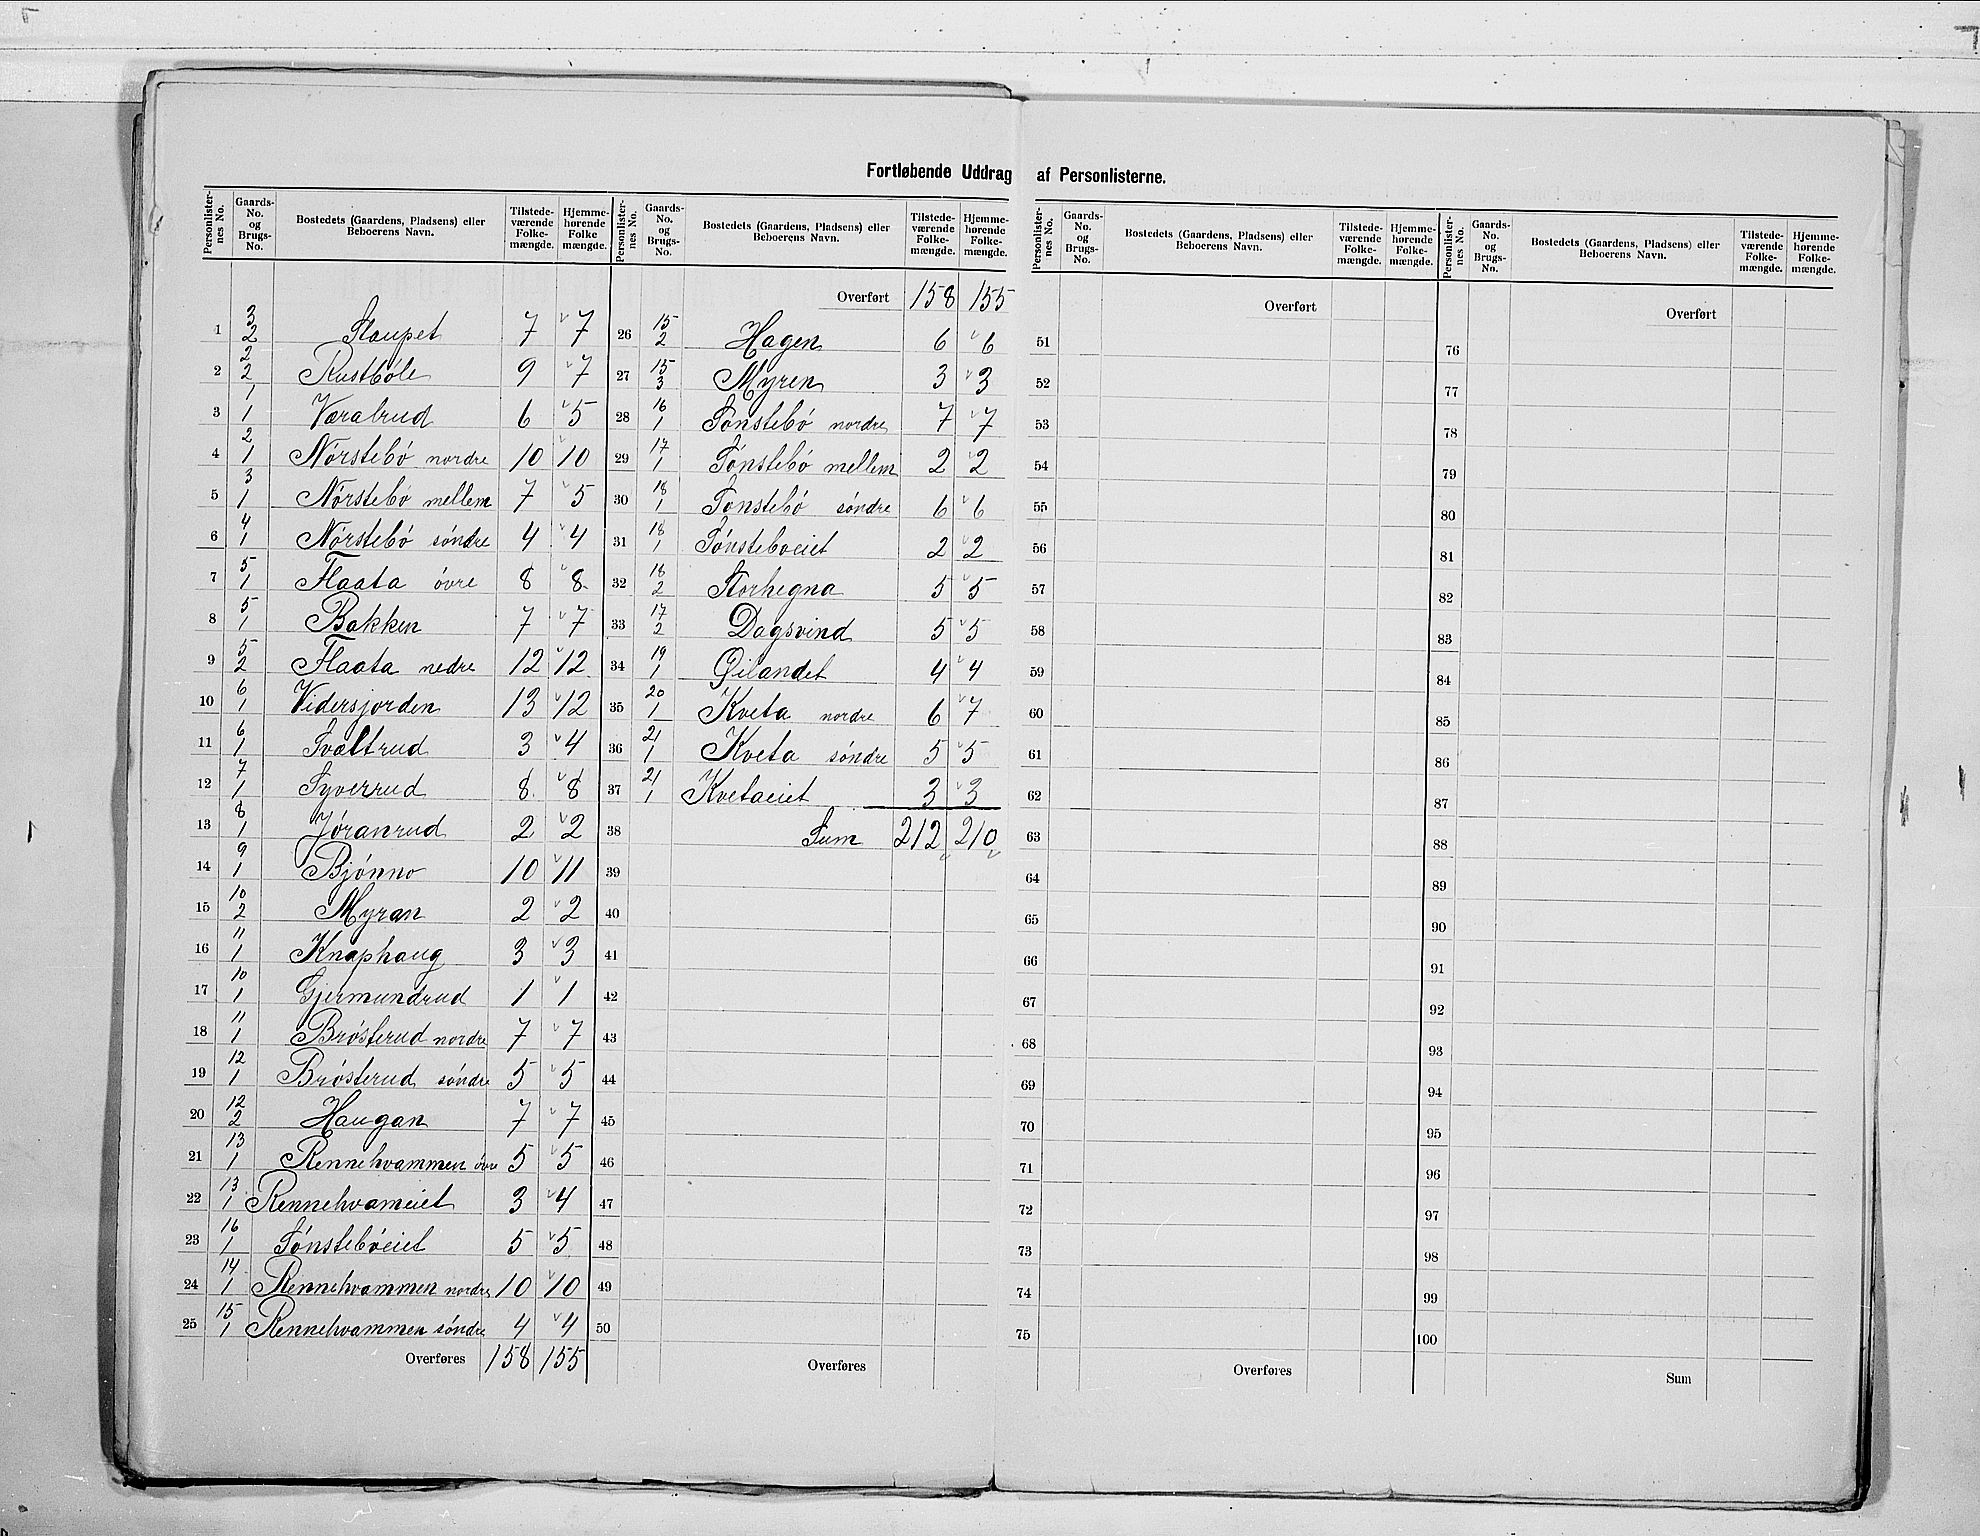 Fortløbende Uddrag af Personlisterne.
Personlister-nes No. | Gaards-No. og Brugs-No. | Bostedets (Gaardens, Pladsens) eller Beboerens Navn. | Tilstede-værende Folke-mængde. | Hjemme-hørende Folke mængde.
1 | 3/2 | Staupet | 7 | 7
2 | 2/2 | Rustbøle | 9 | 7
3 | 1/1 | Væralrud | 6 | 5
4 | 2/1 | Nórstebó nordre | 10 | 10
5 | 3/1 | Nórstebó mellem | 7 | 5
6 | 4/1 | Nórstebó sóndre | 4 | 4
7 | 5/1 | Flaata óvre | 8 | 8
8 | 5/1 | Bakken | 7 | 7
9 | 5/2 | Flaata nedre | 12 | 12
10 | 6/1 | Vidersjorden | 13 | 12
11 | 6/1 | Svaltrud | 3 | 4
12 | 7/1 | Syverrud | 8 | 8
13 | 8/1 | Jóranrud | 2 | 2
14 | 9/1 | Bjónno | 10 | 11
15 | 10/2 | Myran | 2 | 2
16 | 11/1 | Knaphaug | 3 | 3
17 | 10/1 | Gjermundrud | 1 | 1
18 | 11/1 | Brósterud nordre | 7 | 7
19 | 12/1 | Brósterud sóndre | 5 | 5
20 | 12/2 | Haugan | 7 | 7
21 | 13/1 | Rennehvammen óvre | 5 | 5
22 | 13/1 | Rennehvameiet | 3 | 4
23 | 16/1 | Tónstebóeiet | 5 | 5
24 | 14/1 | Rennehvammen nordre | 10 | 10
25 | 15/1 | Rennehvammen sóndre | 4 | 4
Overføres 158 155
Personlister-nes No. | Gaards-No. og Brugs-No. | Bostedets (Gaardens, Pladsens) eller Beboerens Navn. | Tilstede-værende Folke-mængde. | Hjemme-hørende Folke-mængde.
Overført 158 155
26 | 15/2 | Hagen | 6 | 6
27 | 15/3 | Myren | 3 | 3
28 | 16/1 | Tónstebó nordre | 7 | 7
29 | 17/1 | Tónstebó mellem | 2 | 2
30 | 18/1 | Tonstebó sóndre | 6 | 6
31 | 18/1 | Tónsteboeiet | 2 | 2
32 | 18/2 | Storhegna | 5 | 5
33 | 17/2 | Dagsvind | 5 | 5
34 | 19/1 | Øilandet | 4 | 4
35 | 20/1 | Kveta nordre | 6 | 7
36 | 21/1 | Kveta sóndre | 5 | 5
37 | 21/1 | Kvetaeiet | 3 | 3
38 | Sum | 212 | 210
39
40
41
42
43
44
45
46
47
48
49
50
Overføres
Personlister-nes No. | Gaards-No. og Brugs-No. | Bostedets (Gaardens, Pladsens) eller Beboerens Navn. | Tilstede-værende Folke-mængde. | Hjemme-hørende Folke-mængde.
Overført
51
52
53
54
55
56
57
58
59
60
61
62
63
64
65
66
67
68
69
70
71
72
73
74
75
Overføres
Personlister-nes No. | Gaards-No. og Brugs-No. | Bostedets (Gaardens, Pladsens) eller Beboerens Navn. | Tilstede-værende Folke-mængde. | Hjemme-hørende Folke-mængde.
Overført
76
77
78
79
80
81
82
83
84
85
86
87
88
89
90
91
92
93
94
95
96
97
98
99
100
Sum